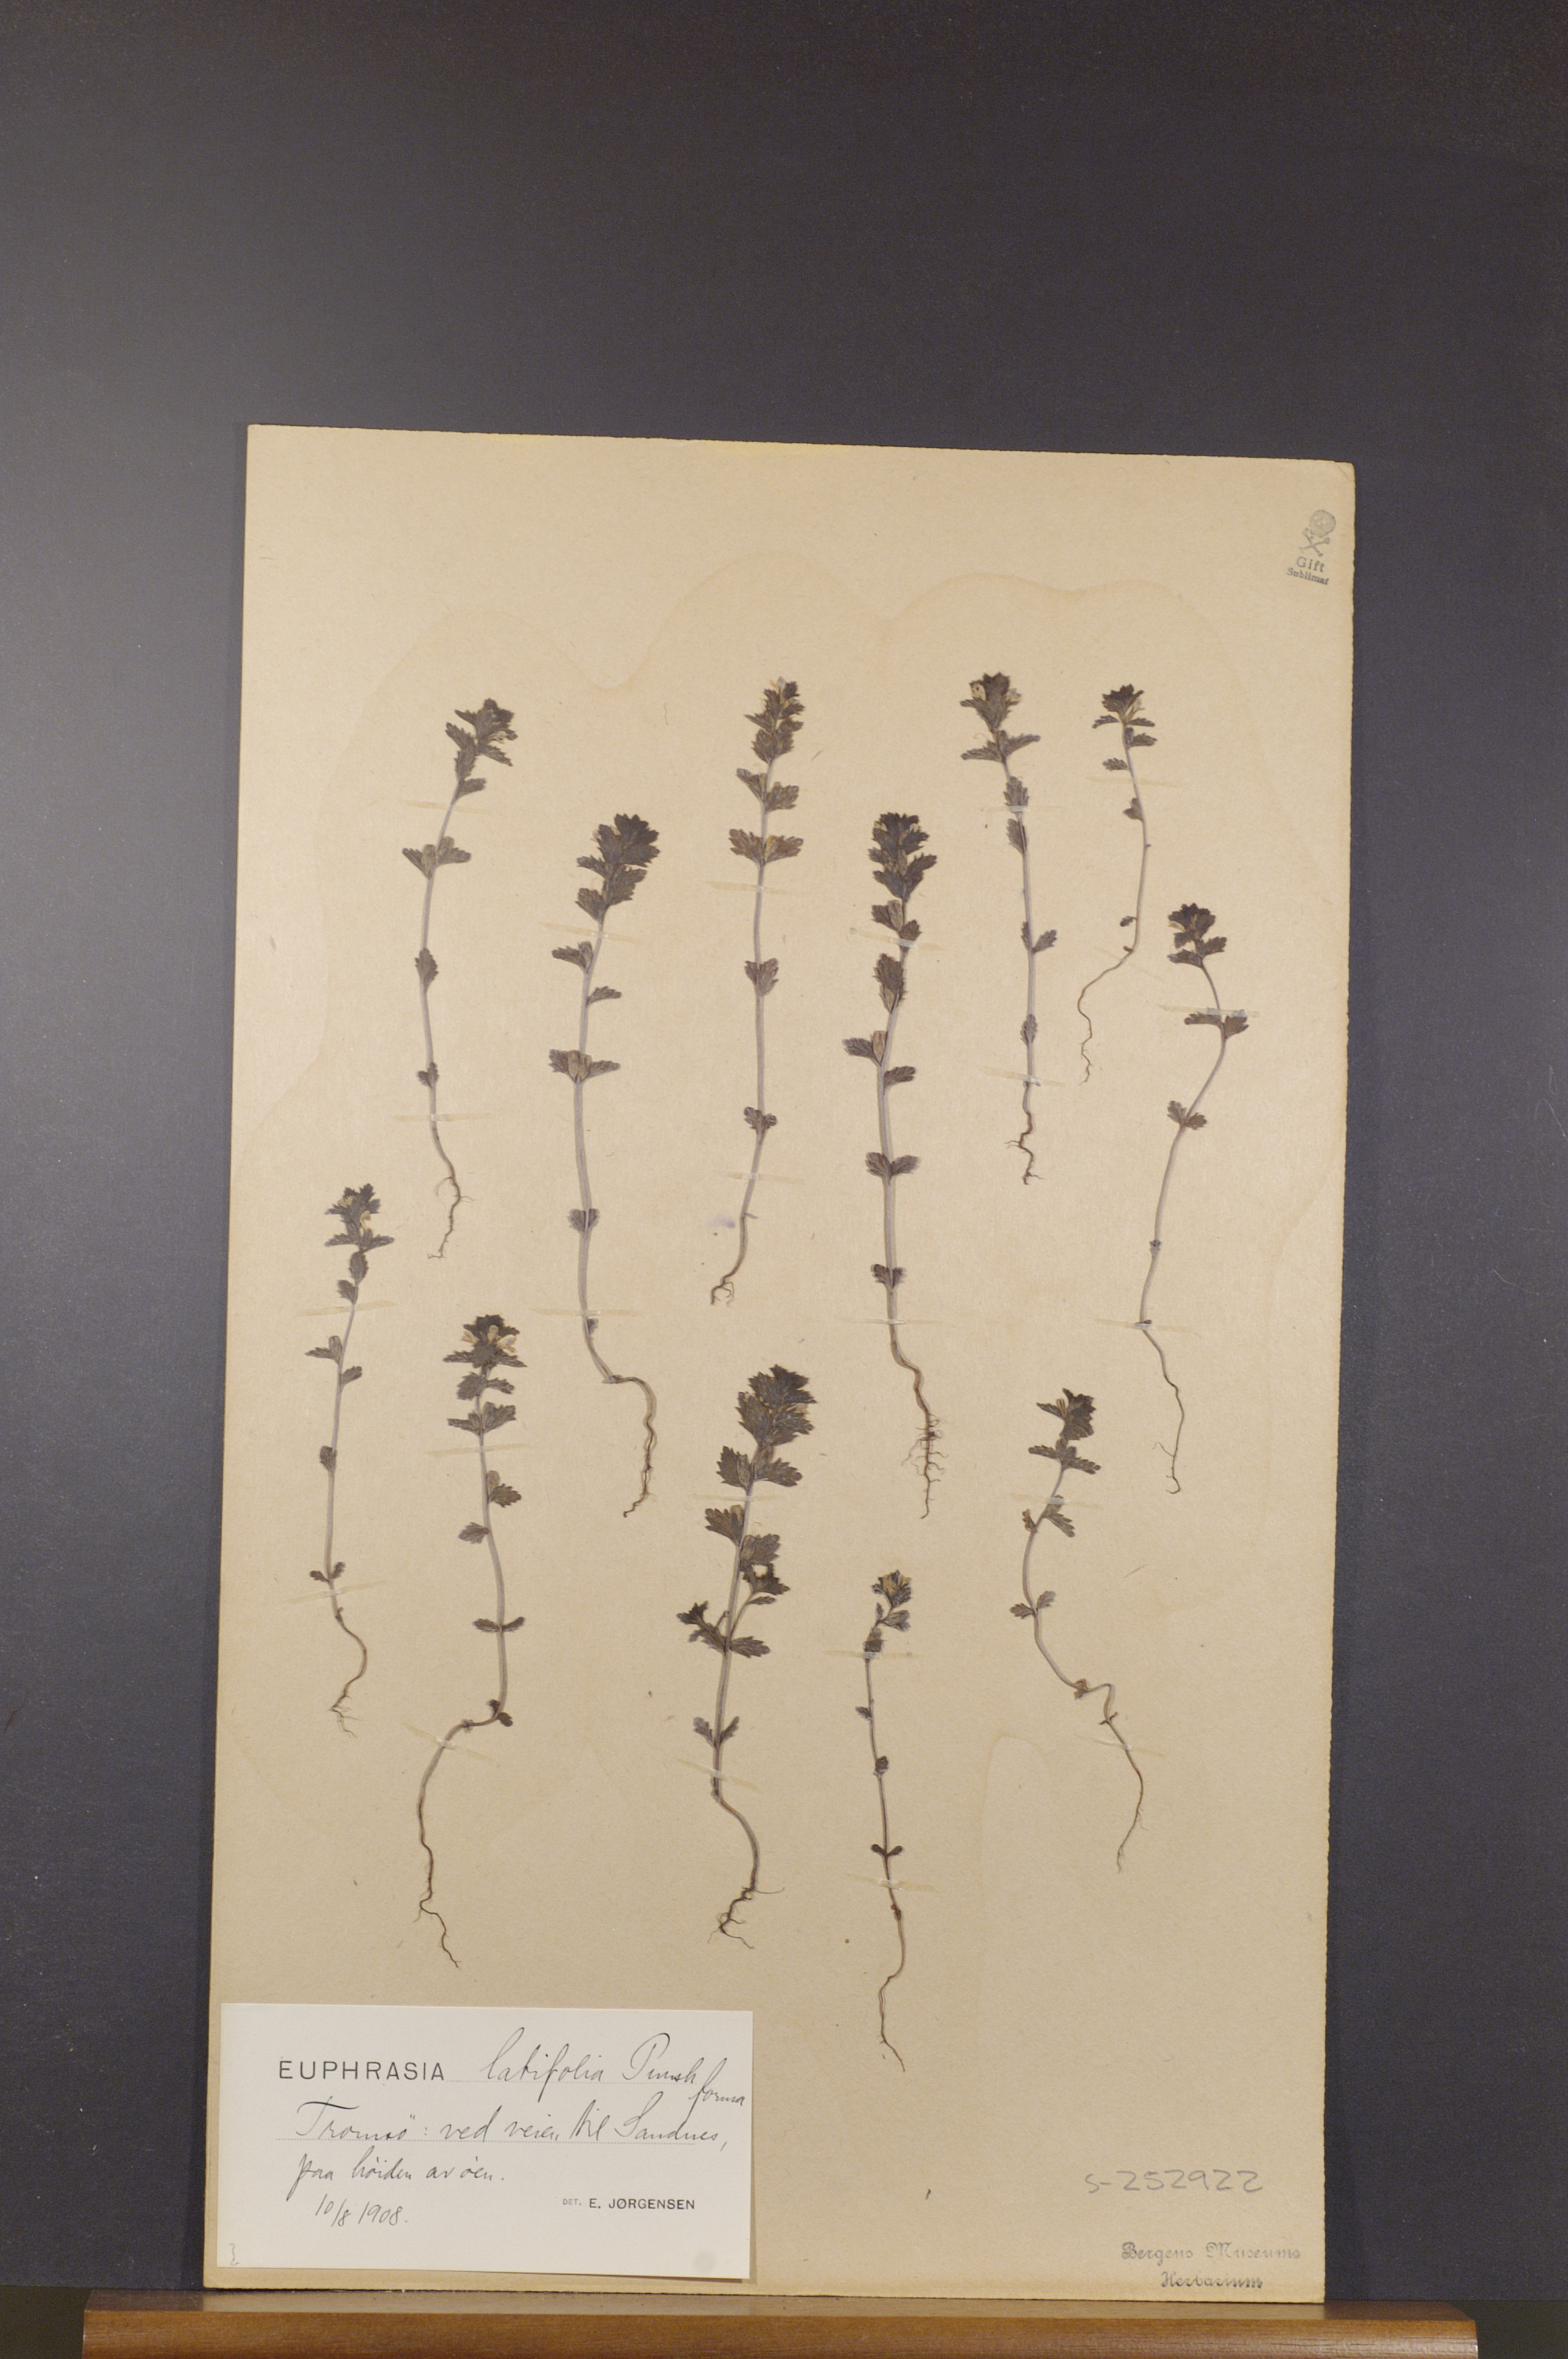 Gift
Sublimat
EUPHRASIA latifolia Pursh
forma
Tromsö: ved veien til Sandnes,
paa höiden av öen.
10/8 1908.
DET. E. JØRGENSEN
S-252922
Bergens Museums
Herbarium